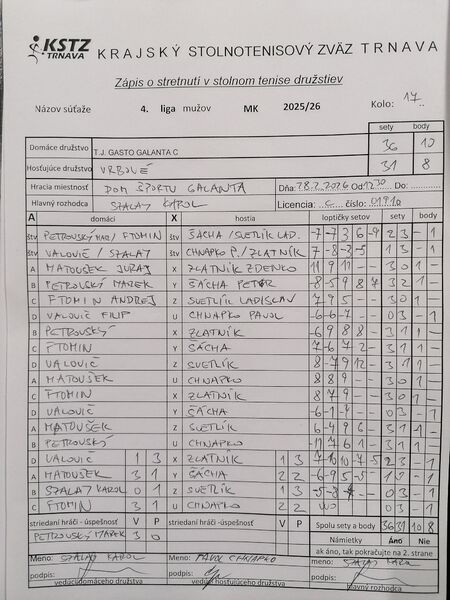 KSTZ
TRNAVA
KRAJSKÝ STOLNOTENISOVÝ ZVÄZ TRNAVA
Zápis o stretnutí v stolnom tenise družstiev
Názov súťaže 4. liga mužov MK 2025/26 Kolo: 17.
sety body
Domáce družstvo T.J. GASTO GALANTA C 36 10
Hosťujúce družstvo VRBOVÉ 31 8
Hracia miestnosť DOM ŠPORTU GALANTA Dňa: 28.2.2026 Od 1230 Do:
Hlavný rozhodca SZALAY KAROL Licencia: C číslo: 01910
A domáci X hostia loptičky setov sety body
štv PETROVSKÝ MAR/FTOMIN štv ŠÁCHA/SVETLÍK LAD. -7 -7 3 6 -9 2 3 - 1
štv VALOVIČ/SZALAY štv CHNAPKO P./ZLATNÍK 7 -8 -3 -5 1 3 - 1
A MATOUŠEK JURAJ X ZLATNÍK ZDENKO 11 9 11 - - 3 0 1 -
B PETROVSKÝ MAREK Y ŠÁCHA PETER -8 -5 9 8 7 3 2 1 -
C FTOMIN ANDREJ Z SVETLÍK LADISLAV 7 9 5 - - 3 0 1 -
D VALOVIČ FILIP U CHNAPKO PAVOL -6 -6 -7 0 3 - 1
B PETROVSKÝ X ZLATNÍK -6 9 8 8 - 3 1 1 -
C FTOMIN Y ŠÁCHA 7 -6 7 2 - 3 1 1 -
D VALOVIČ Z SVETLÍK 8 -7 9 12 - 3 1 1 -
A MATOUŠEK U CHNAPKO 8 8 9 - - 3 0 1 -
C FTOMIN X ZLATNÍK 8 7 9 - - 3 0 1 -
D VALOVIČ Y ŠÁCHA -6 -1 -7 - - 0 3 - 1
A MATOUŠEK Z SVETLÍK -6 4 9 6 - 3 1 1 -
B PETROVSKÝ U CHNAPKO -11 7 6 1 - 3 1 1 -
D VALOVIČ 1 3 X ZLATNÍK 1 3 -7 10 10 -7 -5 2 3 - 1
A MATOUŠEK 3 1 Y ŠÁCHA 2 2 -6 -9 5 -5 - 1 3 - 1
B SZALAY KAROL 0 1 Z SVETLÍK 1 3 -5 -8 0 3 - 1
C FTOMIN 3 1 U CHNAPKO 2 2 WO 0 3 - 1
striedaní hráči - úspešnosť V P striedaní hráči - úspešnosť V P Spolu sety a body 36 31 10 8
PETROVSKÝ MAREK 3 0 Námietky Áno Nie
ak áno, tak pokračujte na 2. strane
Meno: SZALAY KAROL Meno: PAVOL CHNAPKO meno: SZALAY KAROL
podpis: podpis: podpis:
vedúci domáceho družstva vedúci hosťujúceho družstva hlavný rozhodca